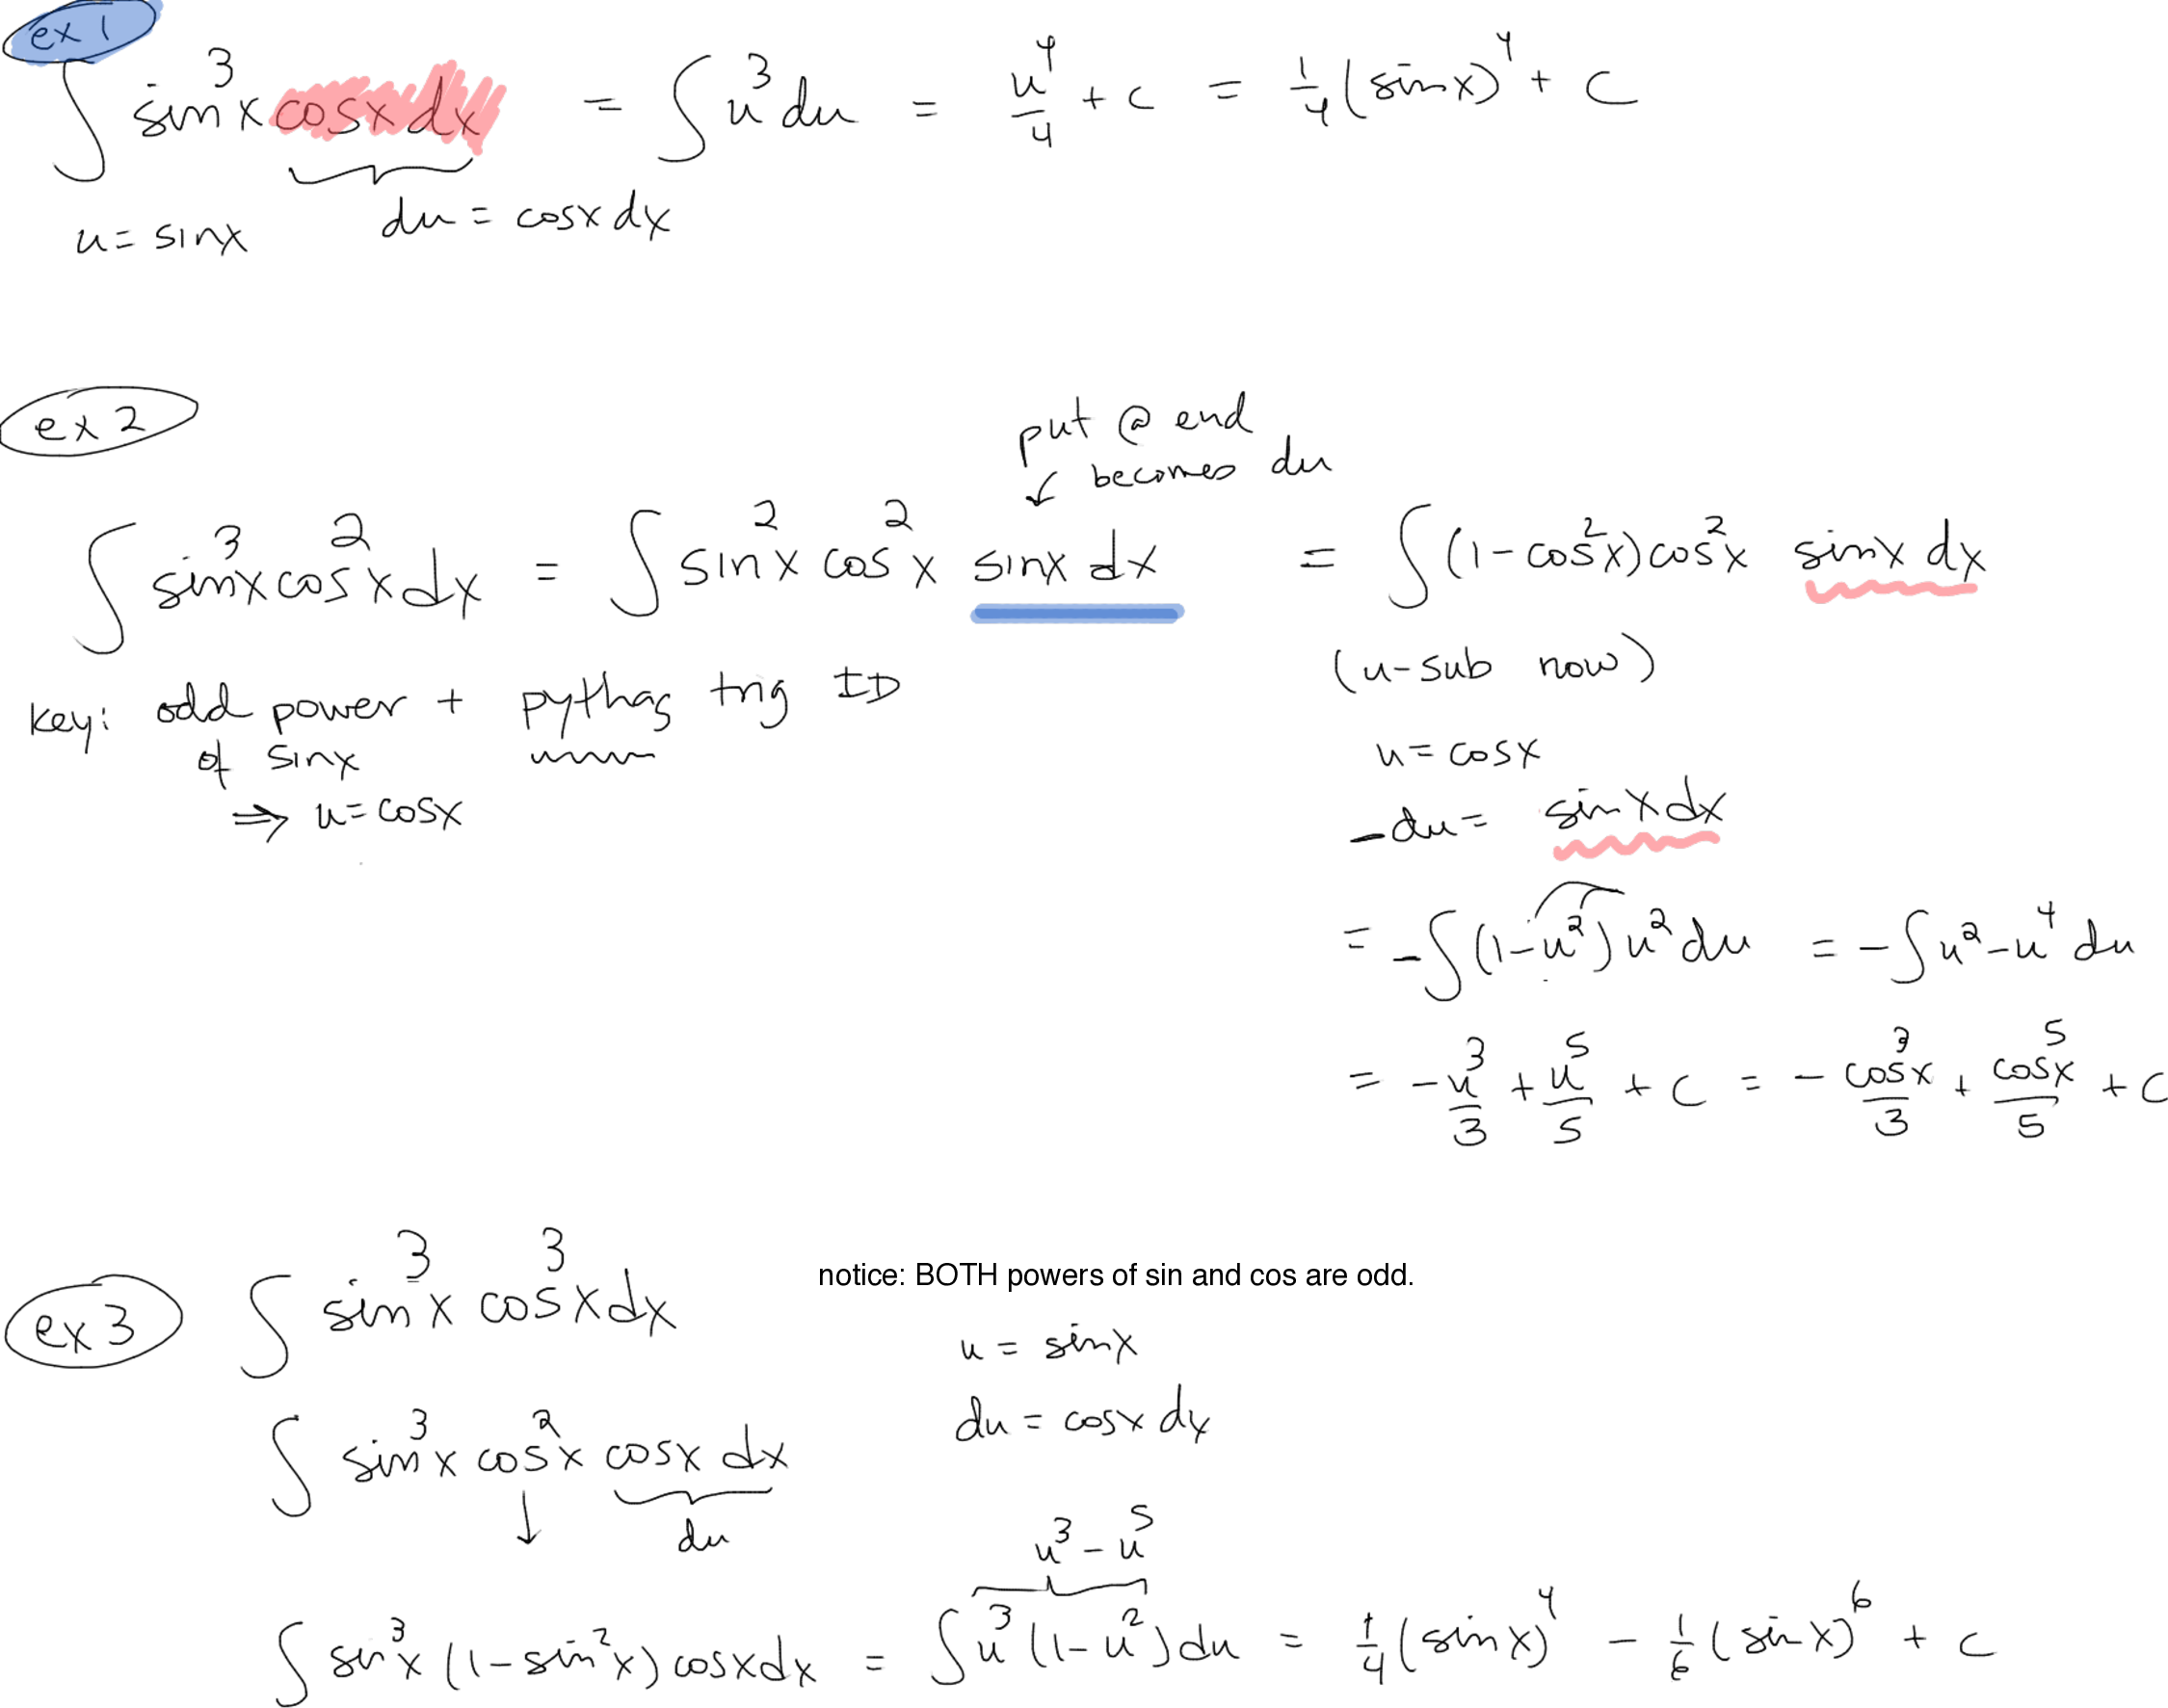 ex 1
∫ sin³x cosx dx = ∫ u³ du = u⁴/4 + c = 1/4 (sinx)⁴ + C
u = sinx du = cosx dx
ex 2
put @ end
↙ becomes du
∫ sin³x cos²x dx = ∫ sin²x cos²x sinx dx = ∫ (1-cos²x) cos²x sinx dx
(u-sub now)
key: odd power + pythag trig ID
of sinx
⇒ u = cosx
u = cosx
-du = sinx dx
= -∫ (1-u²) u² du = -∫ u² - u⁴ du
= -u³/3 + u⁵/5 + C = - cos³x/3 + cos⁵x/5 + C
ex 3
∫ sin³x cos³x dx
notice: BOTH powers of sin and cos are odd.
u = sinx
du = cosx dx
∫ sin³x cos²x cosx dx
↓ du
u³ - u⁵
∫ sin³x (1-sin²x) cosx dx = ∫ u³ (1-u²) du = 1/4 (sinx)⁴ - 1/6 (sinx)⁶ + C